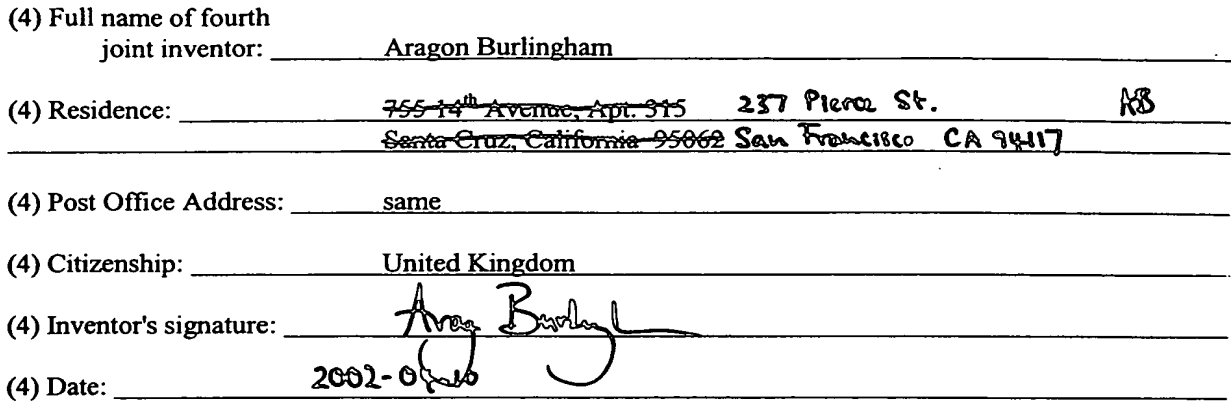 (4) Full name of fourth
joint inventor: Aragon Burlingham
(4) Residence: 755 14th Avenue, Apt. 315 237 Pierce St. AB
Santa Cruz, California 95062 San Francisco CA 94117
(4) Post Office Address: same
(4) Citizenship: United Kingdom
(4) Inventor's signature:
(4) Date: 2002-